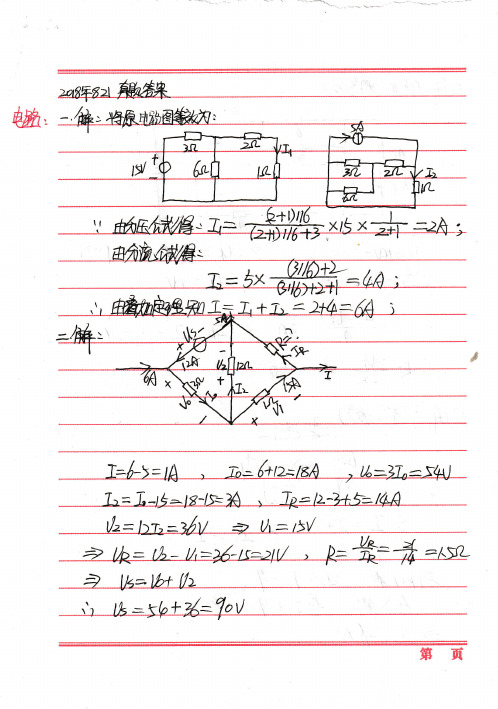 2018年821 真题答案
电路: 一.解: 将原电路图等效为:
3Ω 2Ω I₁ 15V + - 6Ω 1Ω
5A 3Ω 2Ω I₂ 1Ω 6Ω
∵ 由分压公式得: I₁ = (2+1)//6 / (2+1)//6+3 ×15× 1/2+1 =2A;
由分流公式得:
I₂ = 5× (3//6)+2 / (3//6)+2+1 =4A;
∴ 由叠加定理知 I = I₁ + I₂ = 2+4 = 6A ;
二.解:
5A
+ Us - R=? IR
12A - U₂ 12Ω
6A + I
3Ω I₀ I₂ 15A
U₀ 1Ω U₁
- +
I=6-5=1A , I₀=6+12=18A , U₀=3I₀=54V
I₂=I₀-15=18-15=3A , IR=12-3+5=14A
U₂=12I₂=36V ⇒ U₁=15V
⇒ UR=U₂-U₁=36-15=21V , R= UR/IR = 21/14 =1.5Ω
⇒ Us=U₀+U₂
∴ Us=54+36=90V
第 页